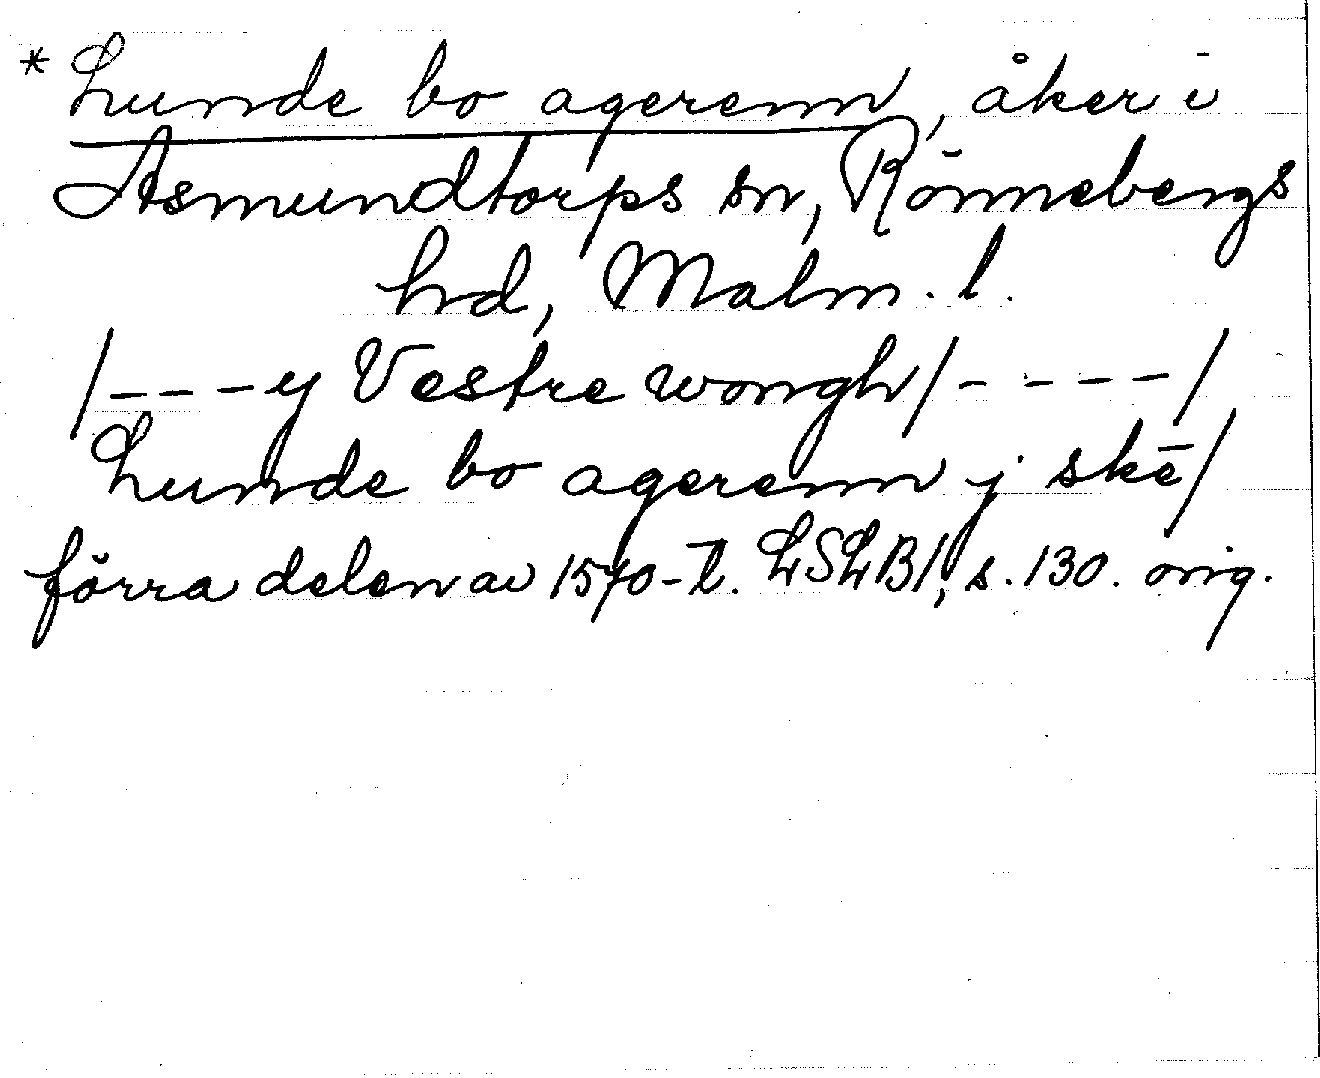 * Lunde bo agerenn, åker i
Asmundtorps sn, Rönnebergs
hrd, Malm. l.
/---y Vestre wongh/----/
Lunde bo agerenn j skē/
förra delen av 1570-t. LSLB1, s. 130. orig.